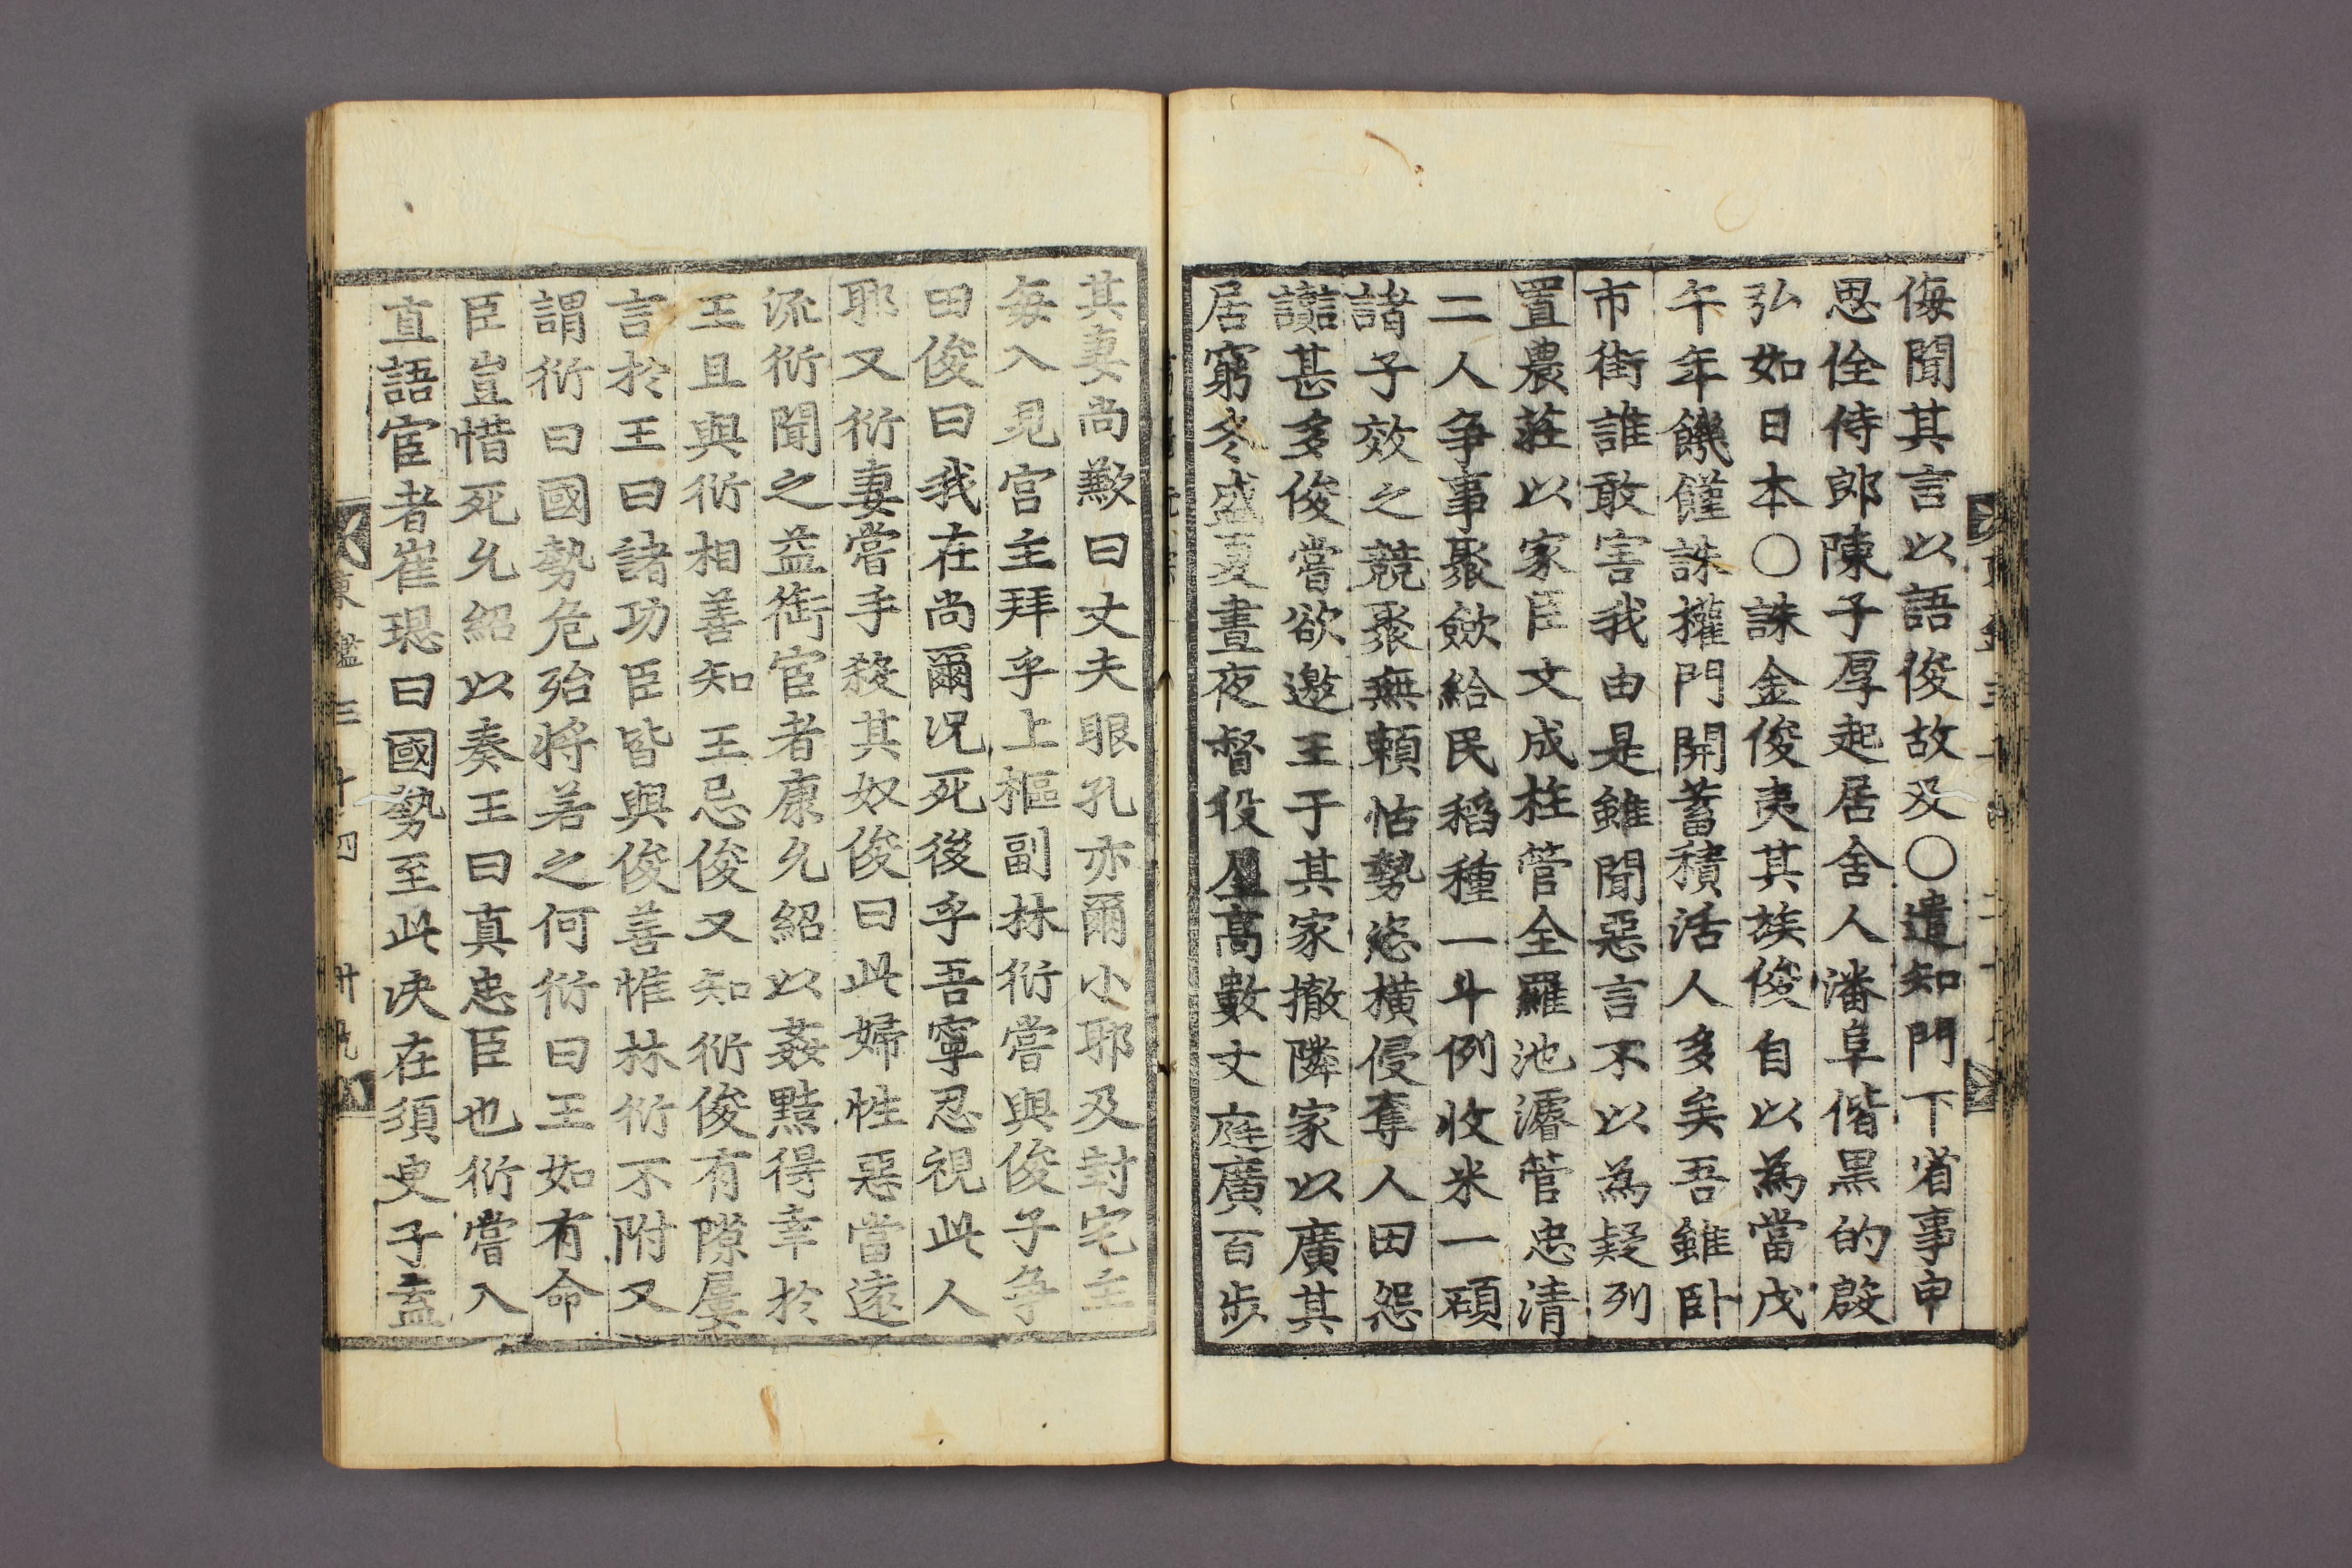 侮聞其言以語俊故及○遣知門下省事申
思佺侍郎陳子厚起居舍人潘阜偕黒的殷
弘如日本○誅金俊夷其族俊自以為當戊
午年饑饉誅權門開蓄積活人多矣吾雖卧
市街誰敢害我由是雖聞惡言不以為疑列
置農莊以家臣文成柱管全羅池濬管忠清
二人争事聚斂給民稻種一斗例收米一碩
諸子效之競聚無賴怙勢恣横侵奪人田怨
讟甚多俊嘗欲邀王于其家撤隣家以廣其
居窮冬盛夏晝夜督役屋高數丈庭廣百步
其妻尚歎曰丈夫眼孔亦爾小耶及封宅主
每入見宫主拜乎上樞副林衍嘗與俊子争
田俊曰我在尚爾况死後乎吾寧忍視此人
耶又衍妻嘗手殺其奴俊曰此婦性惡當遠
流衍聞之益銜宦者康允紹以姦黠得幸於
王且與衍相善知王忌俊又知衍俊有隙屢
言於王曰諸功臣皆與俊善惟林衍不附又
謂衍曰國勢危殆將若之何衍曰王如有命
臣豈惜死允紹以奏王曰真忠臣也衍嘗入
直語宦者崔㻐曰國勢至此决在須臾子盍
東鑑三十四 卅九